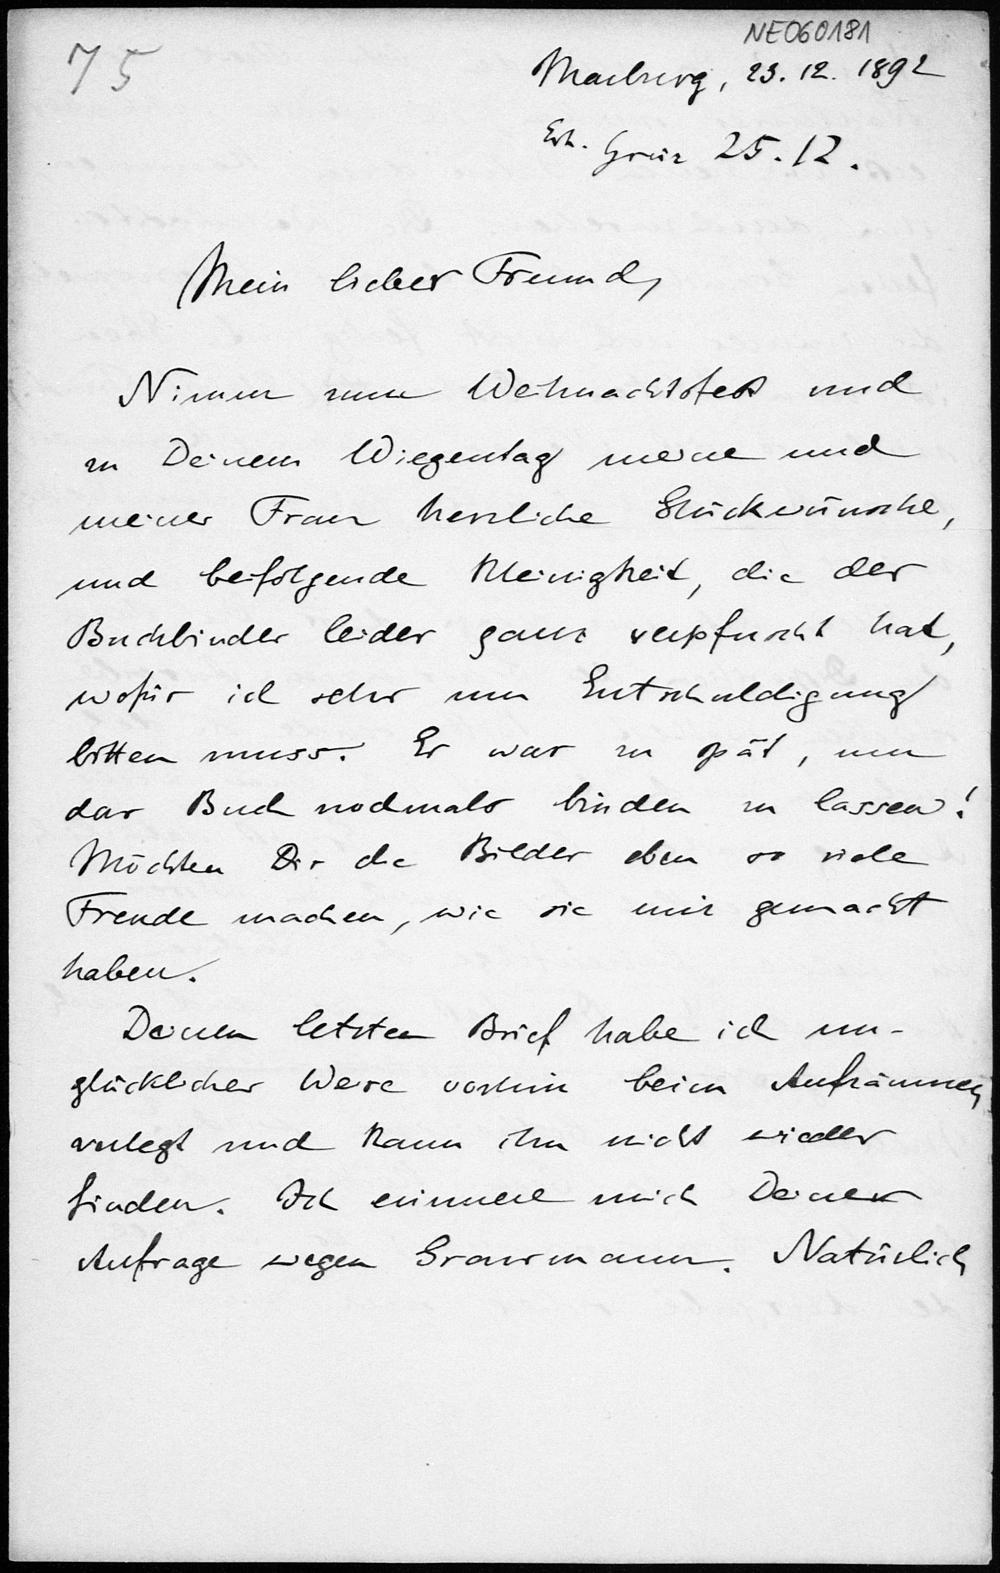 NE060181
75
Marburg, 23. 12. 1892
Erh. Graz 25. 12.
Mein lieber Freund,
Nimm zum Weihnachtsfest und
zu Deinem Wiegentag meine und
meiner Frau herzliche Glückwünsche,
und beifolgende Kleinigkeit, die der
Buchbinder leider ganz verpfuscht hat,
wofür ich sehr um Entschuldigung
bitten muss. Er war zu spät, um
das Buch nochmals binden zu lassen!
Möchten Dir die Bilder eben so viele
Freude machen, wie sie mir gemacht
haben.
Deinen letzten Brief habe ich un-
glücklicher Weise vorhin beim Aufräumen
verlegt und kann ihn nicht wieder
finden. Ich erinnere mich Deiner
Anfrage wegen Grassmann. Natürlich